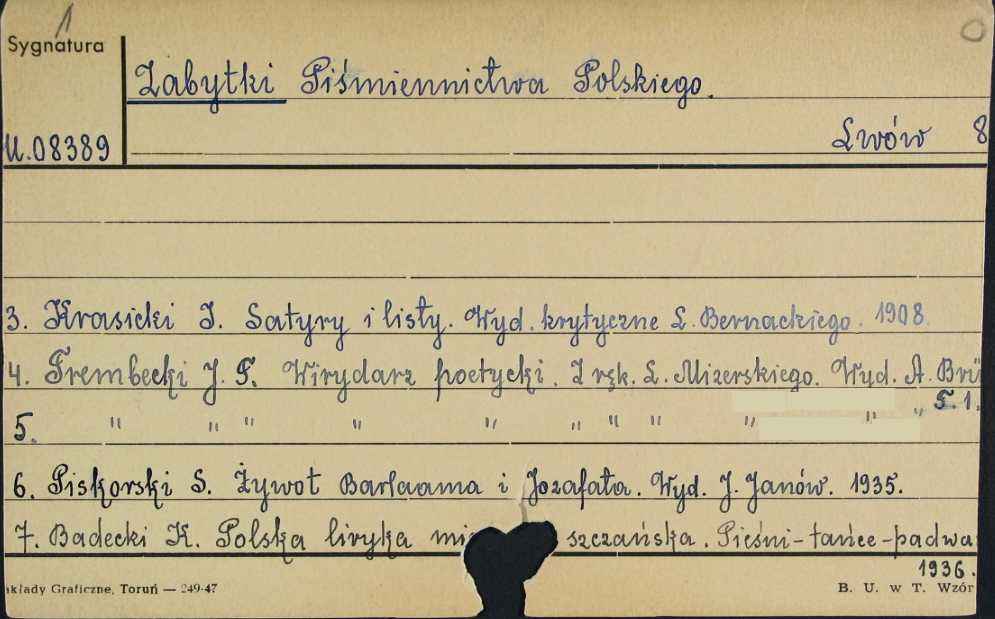 1
Sygnatura
Zabytki Piśmiennictwa Polskiego.
U.08389
Lwów 8
3. Krasicki I. Satyry i listy. Wyd. krytyczne L. Bernackiego. 1908.
4. Trembecki J. T. Wirydarz poetycki. Z ręk. L. Mizerskiego. Wyd. A. Brü
T. 1.
5. " " " " " " " " " " "
6. Piskorski S. Żywot Barlaama i Jozafata. Wyd. J. Janów. 1935.
7. Badecki K. Polska liryka mieszczańska. Pieśni-tańce-padwa
1936.
akłady Graficzne, Toruń — 249-47
B. U. w T. Wzór